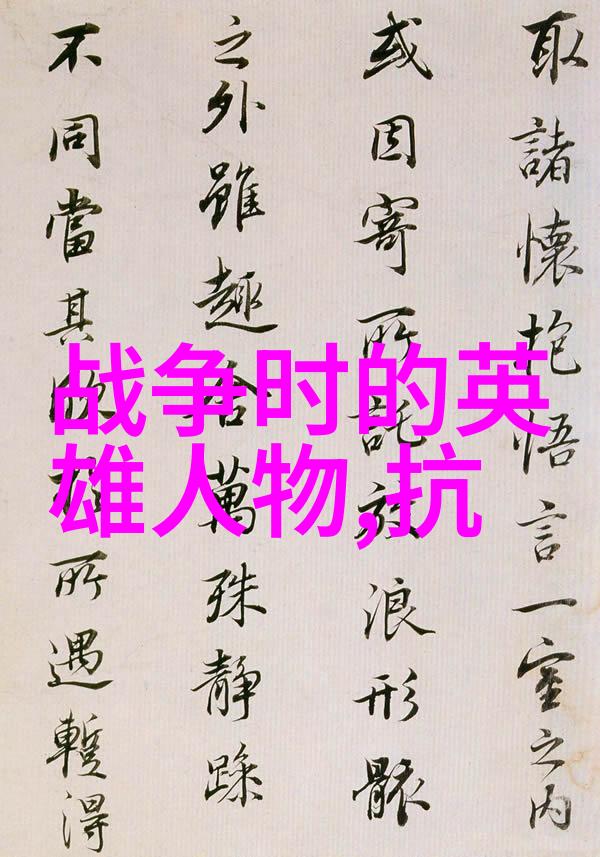 取諸懷抱悟言一室之内
或因寄所託放浪形骸
之外雖趣舍萬殊靜躁
不同當其欣於所遇暫得
战争时的英
雄人物,抗